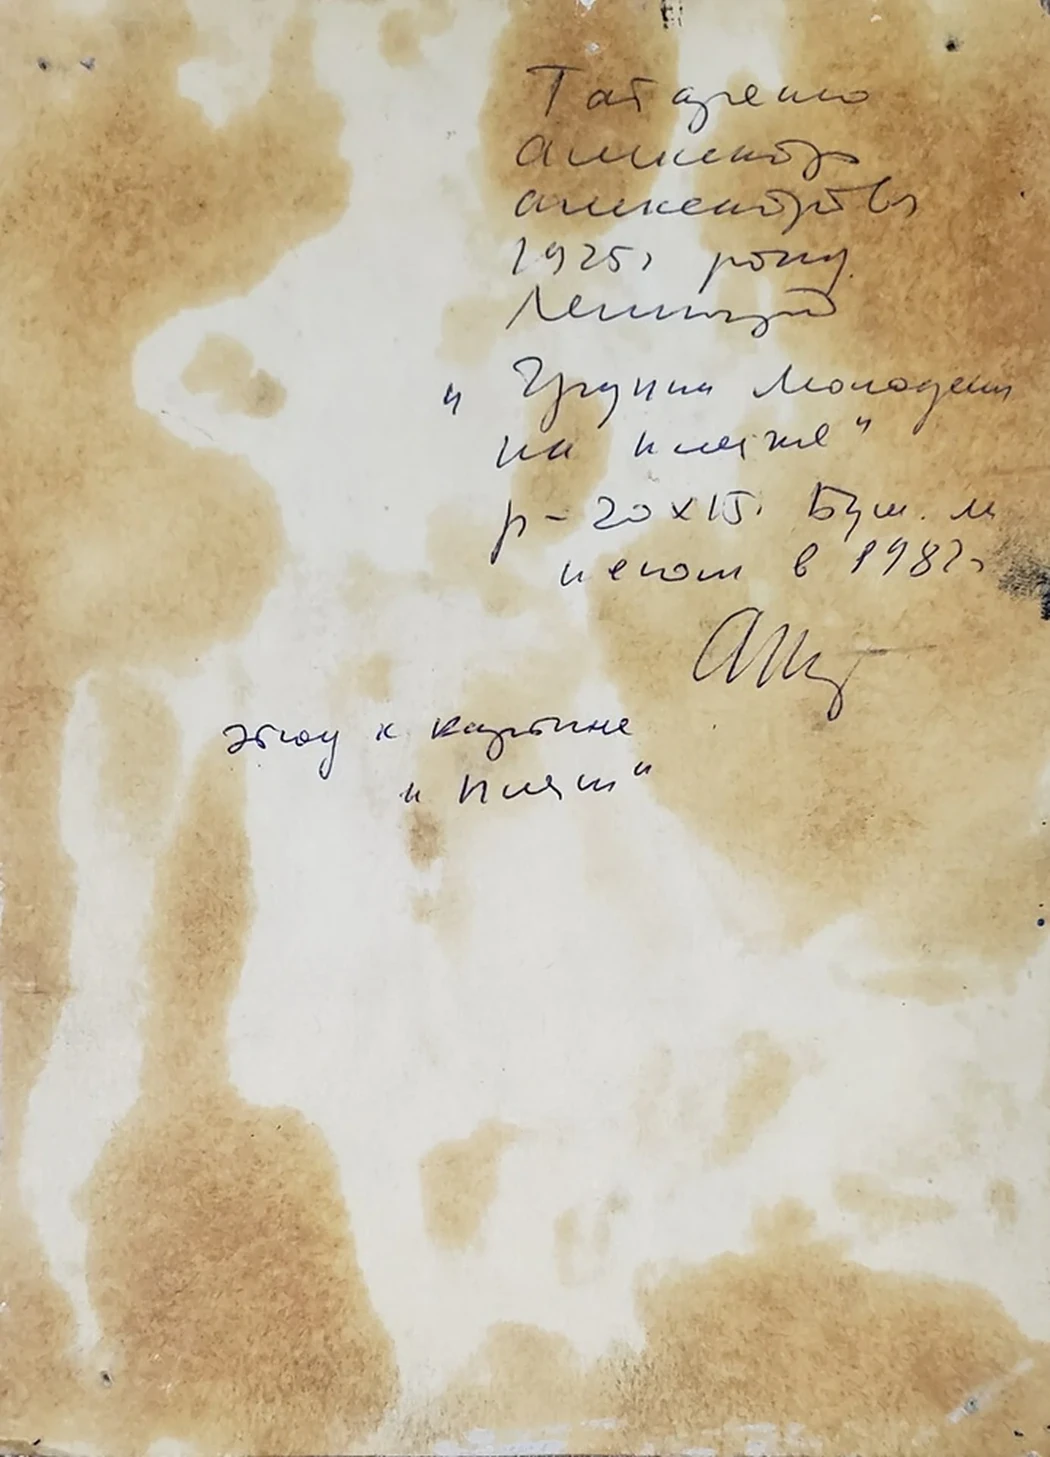 Татаренко
Александр
Александрович
1925г рожд
Ленинград
"Группа молодежи
на пляже"
р - 20х15. Бум. м
писал в 1982г
этюд к картине
"Пляж"